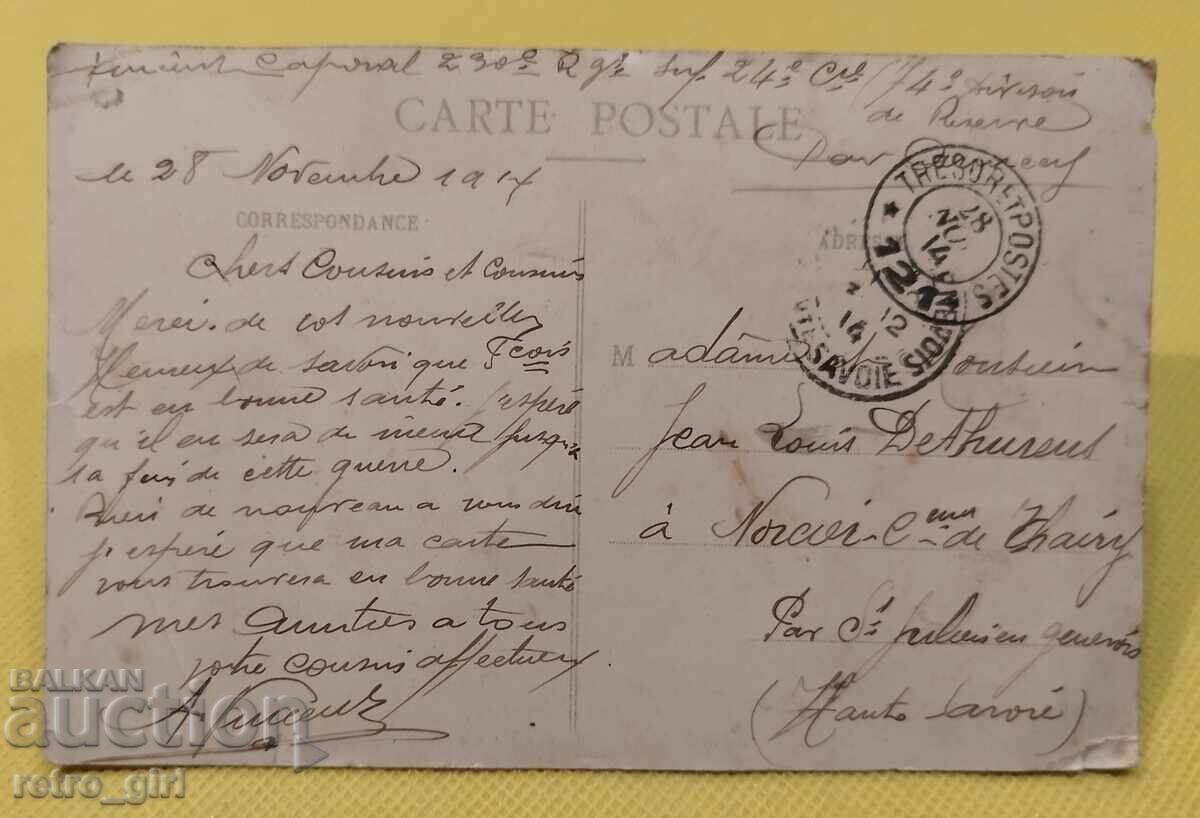 Caporal 230e Rgt Inf 24e Cie 74e Division
de Reserve
CARTE POSTALE
Par
le 28 Novembre 1914
CORRESPONDANCE
Chers Cousins et Cousines
Merci de vos nouvelles
Heureux de savoir que Fcois
est en bonne santé. J'espère
qu'il en sera de même jusqu'a
la fin de cette guerre.
Rien de nouveau a vous dire
j'espéré que ma carte
vous trouvera en bonne santé
mes amitiés a tous
votre cousin affectueux
ADRESSE
TRESOR ET POSTES
28
NOV
14
★ 121
12
14
HTE SAVOIE
Madame Monsieur
Jean Louis
à Norcier Cne de Thairy
Par St Julien en genevois
(Haute Savoie)
BALKAN
auction
retro_girl